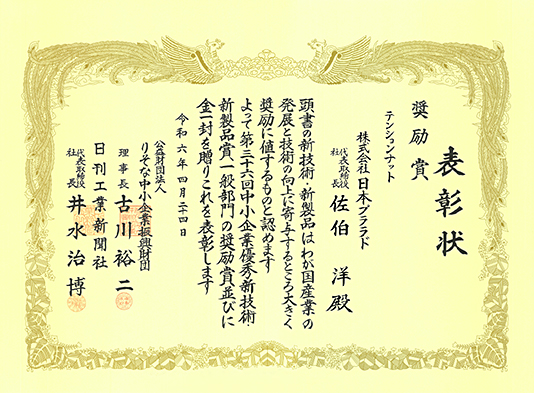 表彰状
奨励賞
テンションナット
株式会社日本プララド
代表取締役
社長 佐伯 洋 殿
頭書の新技術・新製品はわが国産業の
発展と技術の向上に寄与するところ大きく
奨励に値するものと認めます
よって第三十六回中小企業優秀新技術・
新製品賞一般部門の奨励賞並びに
金一封を贈りこれを表彰します
令和六年四月二十四日
公益財団法人
りそな中小企業振興財団
理事長 古川裕二
日刊工業新聞社
代表取締役
社長 井水治博